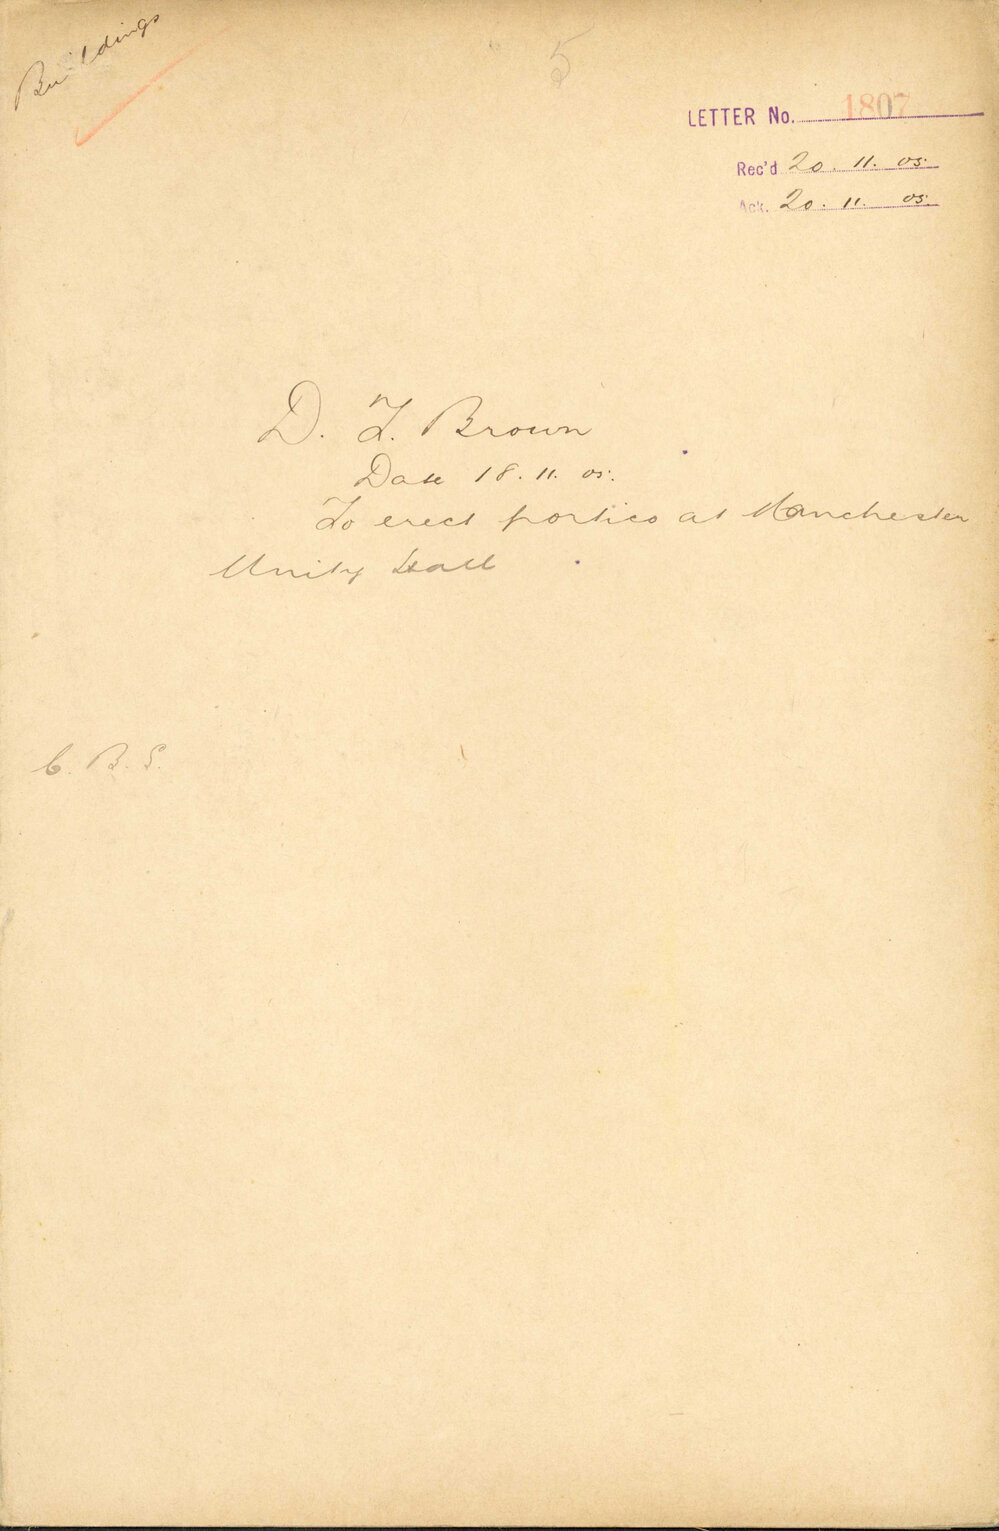 Buildings
5
LETTER No. 1807
Rec'd 20. 11. 05.
Ack. 20. 11. 05.
D. T. Brown
Date 18. 11. 05.
To erect portico at Manchester
Unity Hall
C. B. S.